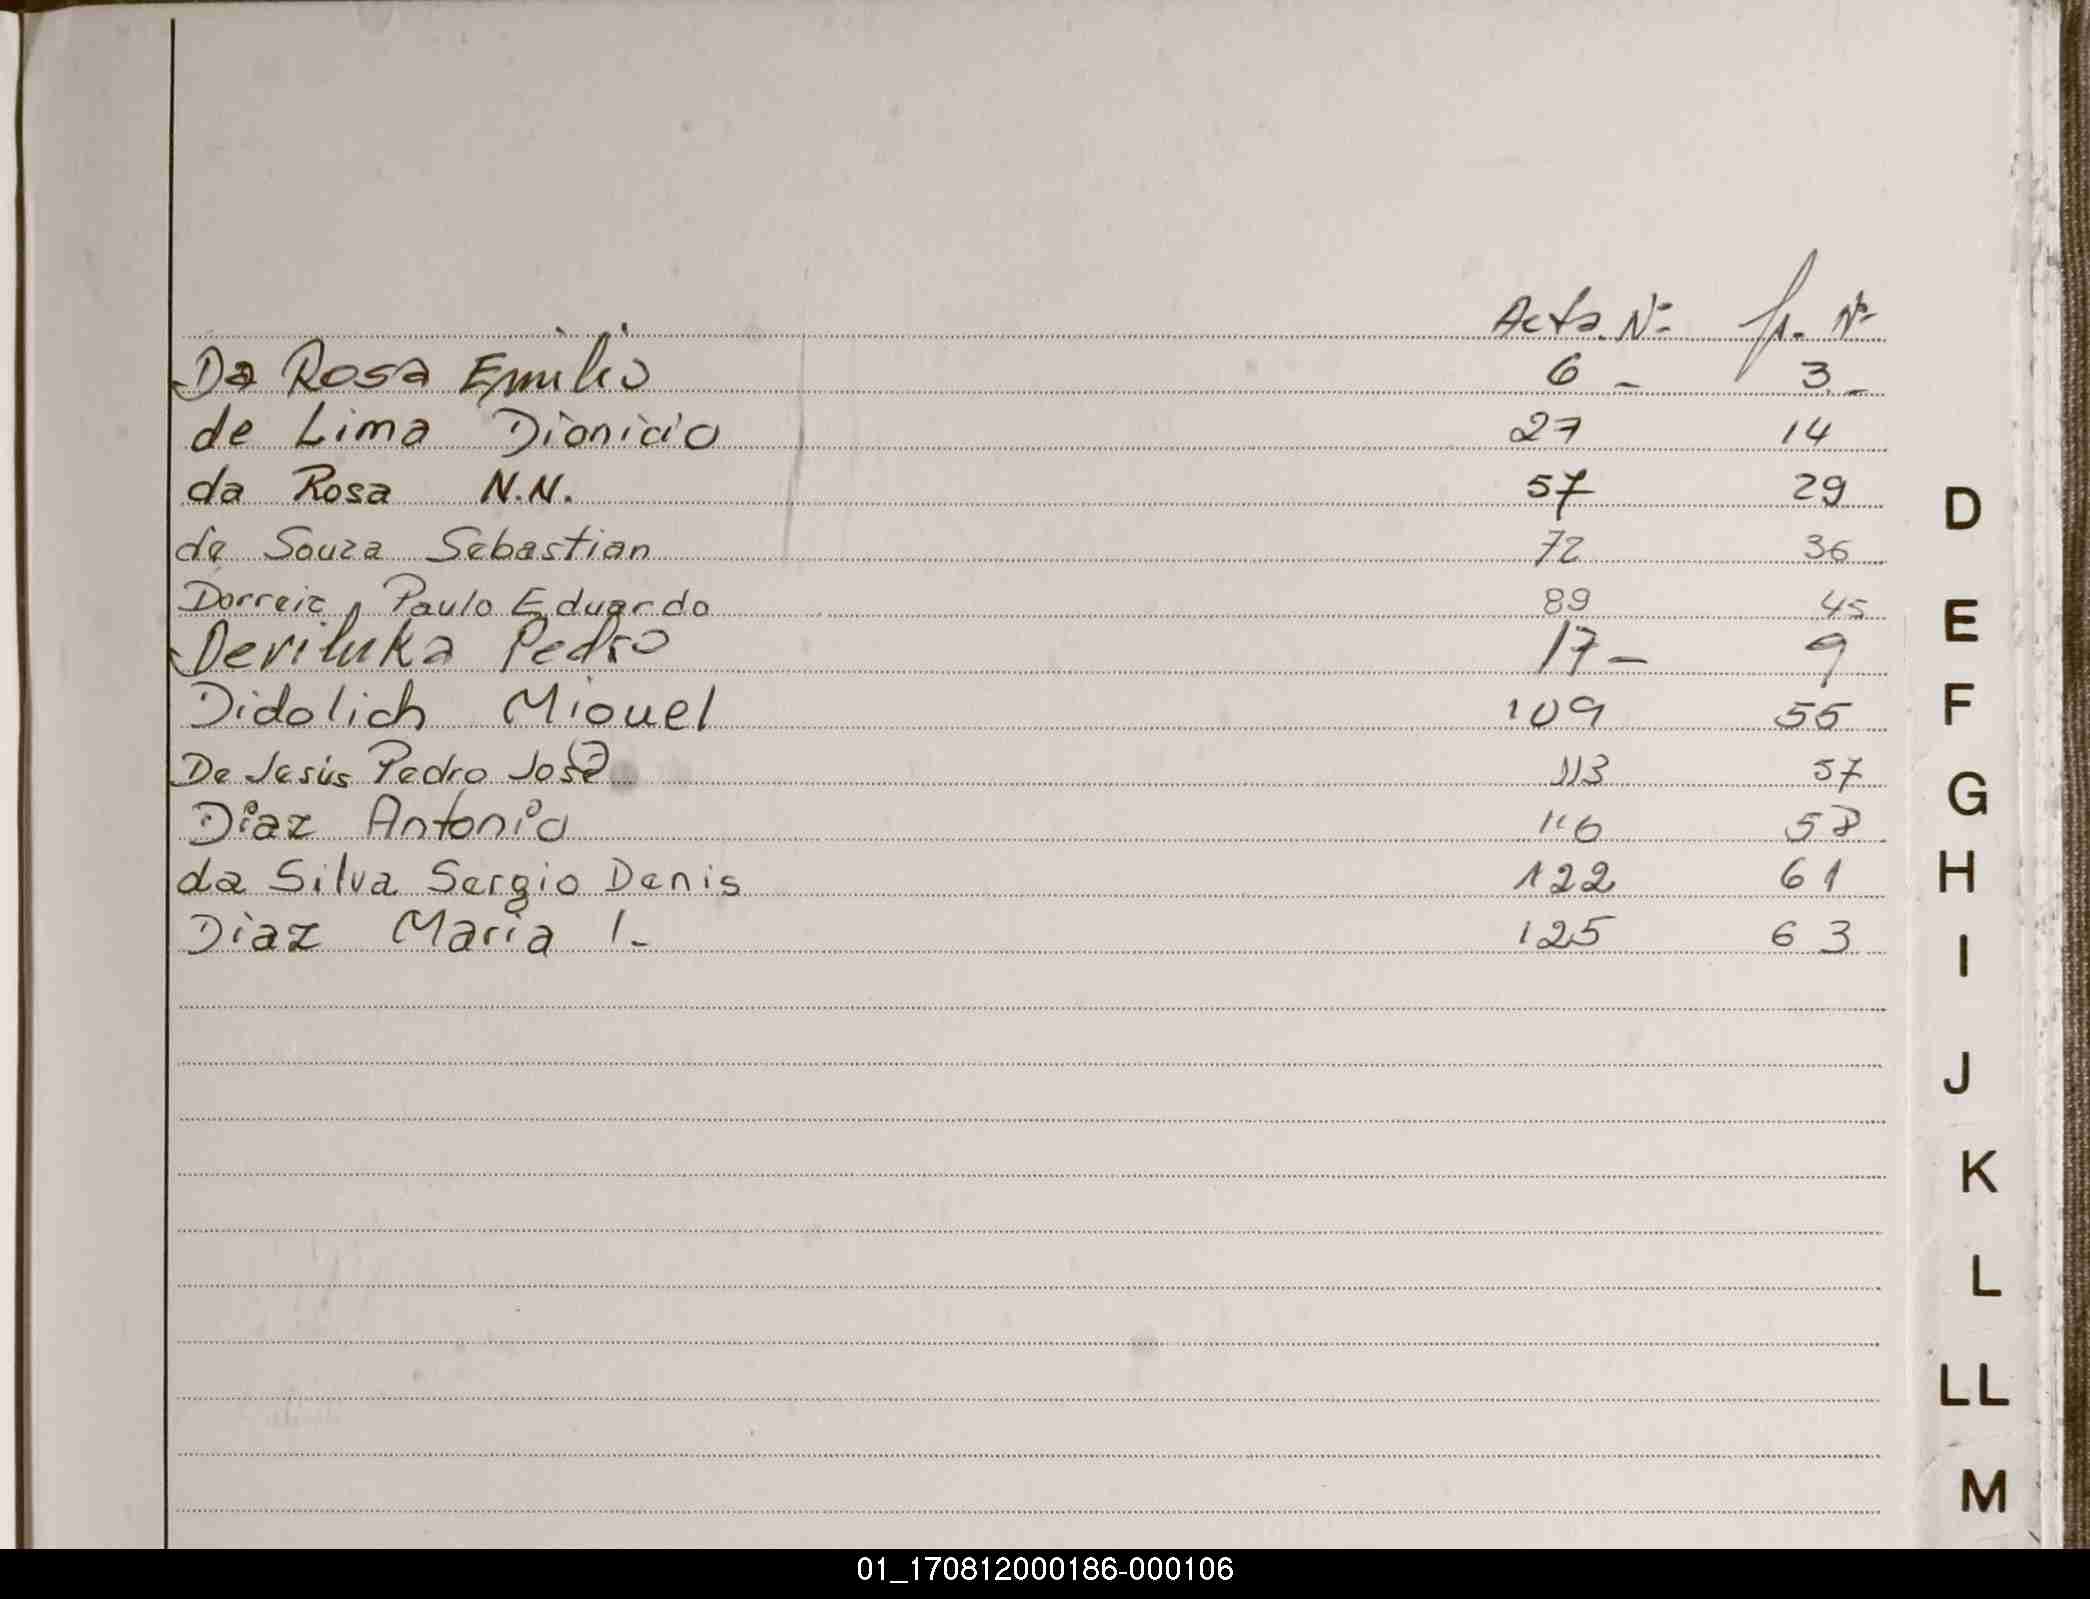 Acta Nº fº. Nº
Da Rosa Emilio 6 - 3 -
de Lima Dionicio 27 14
da Rosa N.N. 57 29
de Souza Sebastian 72 36
Dorreic, Paulo Eduardo 89 45
Deriluka Pedro 17 - 9
Didolich Miguel 109 55
De Jesús Pedro José 113 57
Diaz Antonio 116 58
da Silva Sergio Denis 122 61
Diaz Maria I.- 125 63
D
E
F
G
H
I
J
K
L
LL
M
01_170812000186-000106